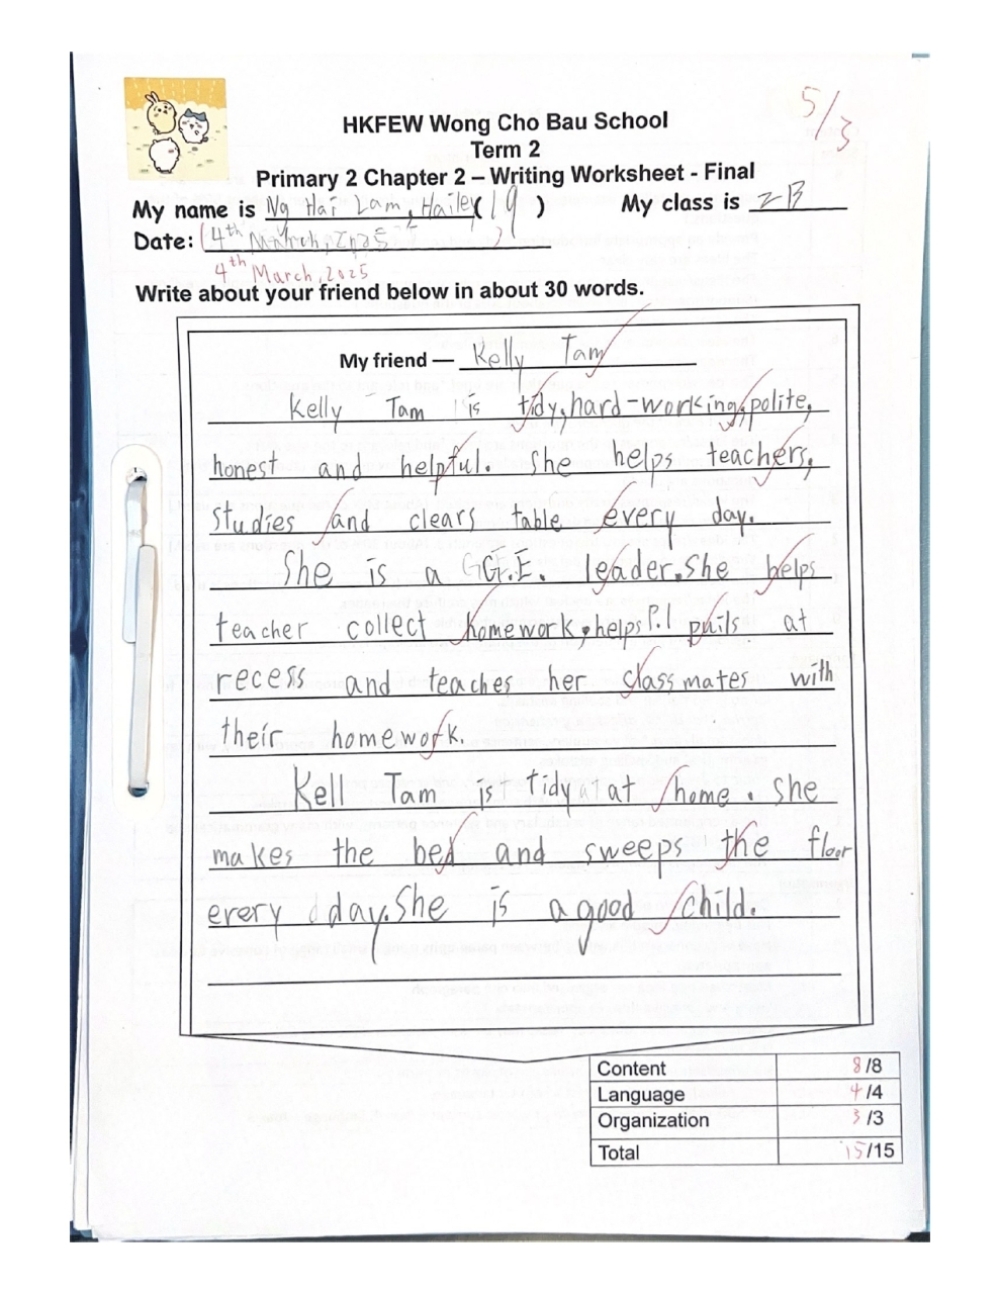 5/3
HKFEW Wong Cho Bau School
Term 2
Primary 2 Chapter 2 – Writing Worksheet - Final
My name is Ng Hai Lam, Hailey (19) My class is 2B
Date: 4th March, 2025
4th March, 2025
Write about your friend below in about 30 words.
My friend — Kelly Tam
Kelly Tam is tidy, hard-working, polite,
honest and helpful. She helps teachers,
studies and clears table every day.
She is a G.E. leader. She helps
teacher collect homework, helps P.1 puils at
recess and teaches her classmates with
their homework.
Kell Tam is tidy at home. She
makes the bed and sweeps the floor
every day. She is a good child.
Content 8/8
Language 4/4
Organization 3/3
Total 15/15